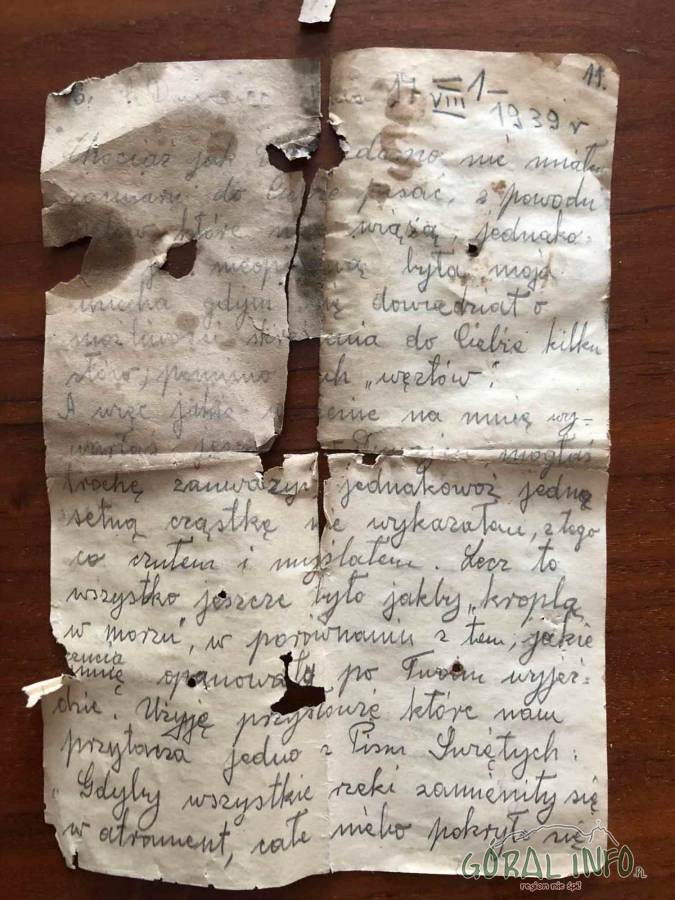 6. 17 VIII 1- 11.
1939 r
Chociaż jak nie miałem
zamiaru do Ciebie pisać, z powodu
które wiążą, jednako-
była moja
uciecha gdym się dowiedział o
możliwości do Ciebie kilku
słów, pomimo ch „węzłów".
A więc jakie na mnie wy-
warłaś, mogłaś
trochę zauważyć jednakowoż jedną
setną cząstkę nie wykazałam, z tego
co czułem i myślałem. Lecz to
wszystko jeszcze było jakby „kroplą
w morzu", w porównaniu z tem, jakie
uczucia
mnie opanowały po Twoim wyjeź-
dzie. Użyję przysłowie które nam
przytacza jedno z Pism Świętych:
„Gdyby wszystkie rzeki zamieniły się
w atrament, całe niebo pokrył się
GÓRAL INFO.PL
region nie śpi!